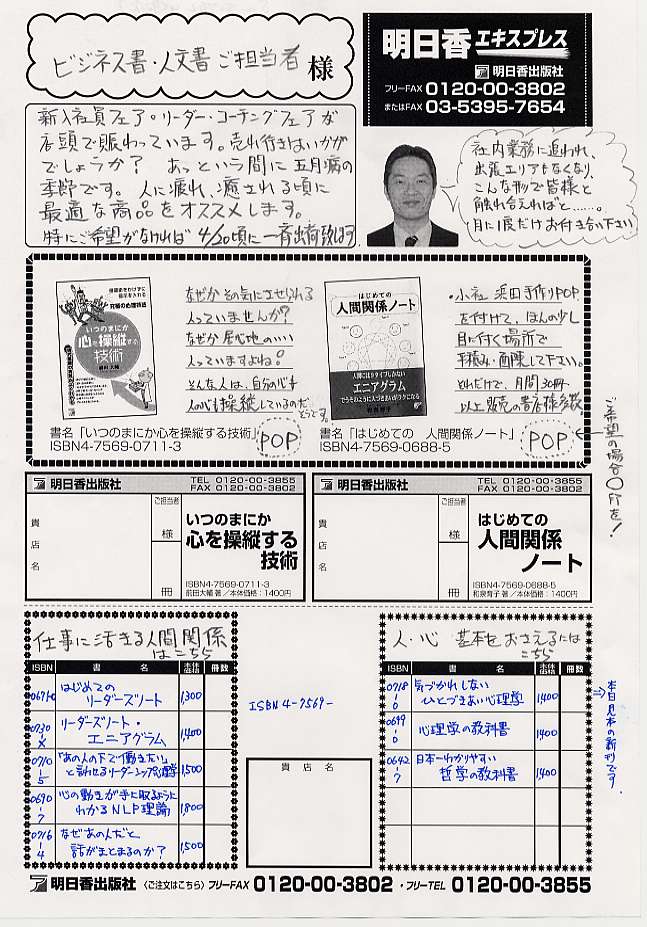 ビジネス書・人文書ご担当者 様
明日香エキスプレス
明日香出版社
フリーFAX 0120-00-3802
またはFAX 03-5395-7654
新入社員フェア・リーダー・コーチングフェアが
店頭で賑わっています。売れ行きはいかが
でしょうか? あっという間に五月病の
季節です。人に疲れ、癒される頃に
最適な商品をオススメします。
特にご希望がなければ 4/20頃に一斉出荷致します
社内業務に追われ、
出張エリアもなくなり、
こんな形で皆様と
触れ合えればと……。
月に1度だけお付き合い下さい
いつのまにか
心を操縦する
技術
なぜかその気にさせられる
人っていませんか?
なぜか居心地のいい
人っていますよね?
そんな人は、自分の心も
人の心も操縦しているのだ
そうです。
はじめての
人間関係ノート
エニアグラム
・小社 浜田手作りPOP
を付けて、ほんの少し
目に付く場所で
平積み・面陳して下さい。
それだけで、月間30冊
以上販売の書店様多数
書名「いつのまにか心を操縦する技術」 POP
ISBN4-7569-0711-3
書名「はじめての 人間関係ノート」 POP
ISBN4-7569-0688-5
ご希望の場合○印を!
明日香出版社 TEL 0120-00-3855
FAX 0120-00-3802
貴店名
ご担当者
様
冊
いつのまにか
心を操縦する
技術
ISBN4-7569-0711-3
前田大輔 著/本体価格:1400円
明日香出版社 TEL 0120-00-3855
FAX 0120-00-3802
貴店名
ご担当者
様
冊
はじめての
人間関係
ノート
ISBN4-7569-0688-5
和泉育子 著/本体価格:1400円
仕事に活きる人間関係
はこちら
ISBN 書名 本体価格 冊数
0671-0 はじめての リーダーズノート 1,300
0730-X リーダーズノート・エニアグラム 1,400
0710-5 「あの人の下で働きたい」と言わせるリーダーシップ心理学 1,500
0690-7 心の動きが手に取るようにわかるNLP理論 1,800
0716-4 なぜあの人だと話がまとまるのか? 1,500
ISBN4-7569-
貴店名
人・心 基本をおさえるには
こちら
ISBN 書名 本体価格 冊数
0718-0 気づかれしない ひとづきあい心理学 1,400
0699-0 心理学の教科書 1,400
0642-7 日本一わかりやすい 哲学の教科書 1,400
⇒本日見本の新刊です。
明日香出版社 〈ご注文はこちら〉フリーFAX 0120-00-3802 ・フリーTEL 0120-00-3855